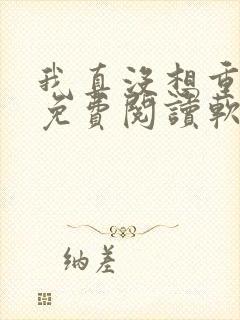 我真没想重
免費閱讀軟
纳差